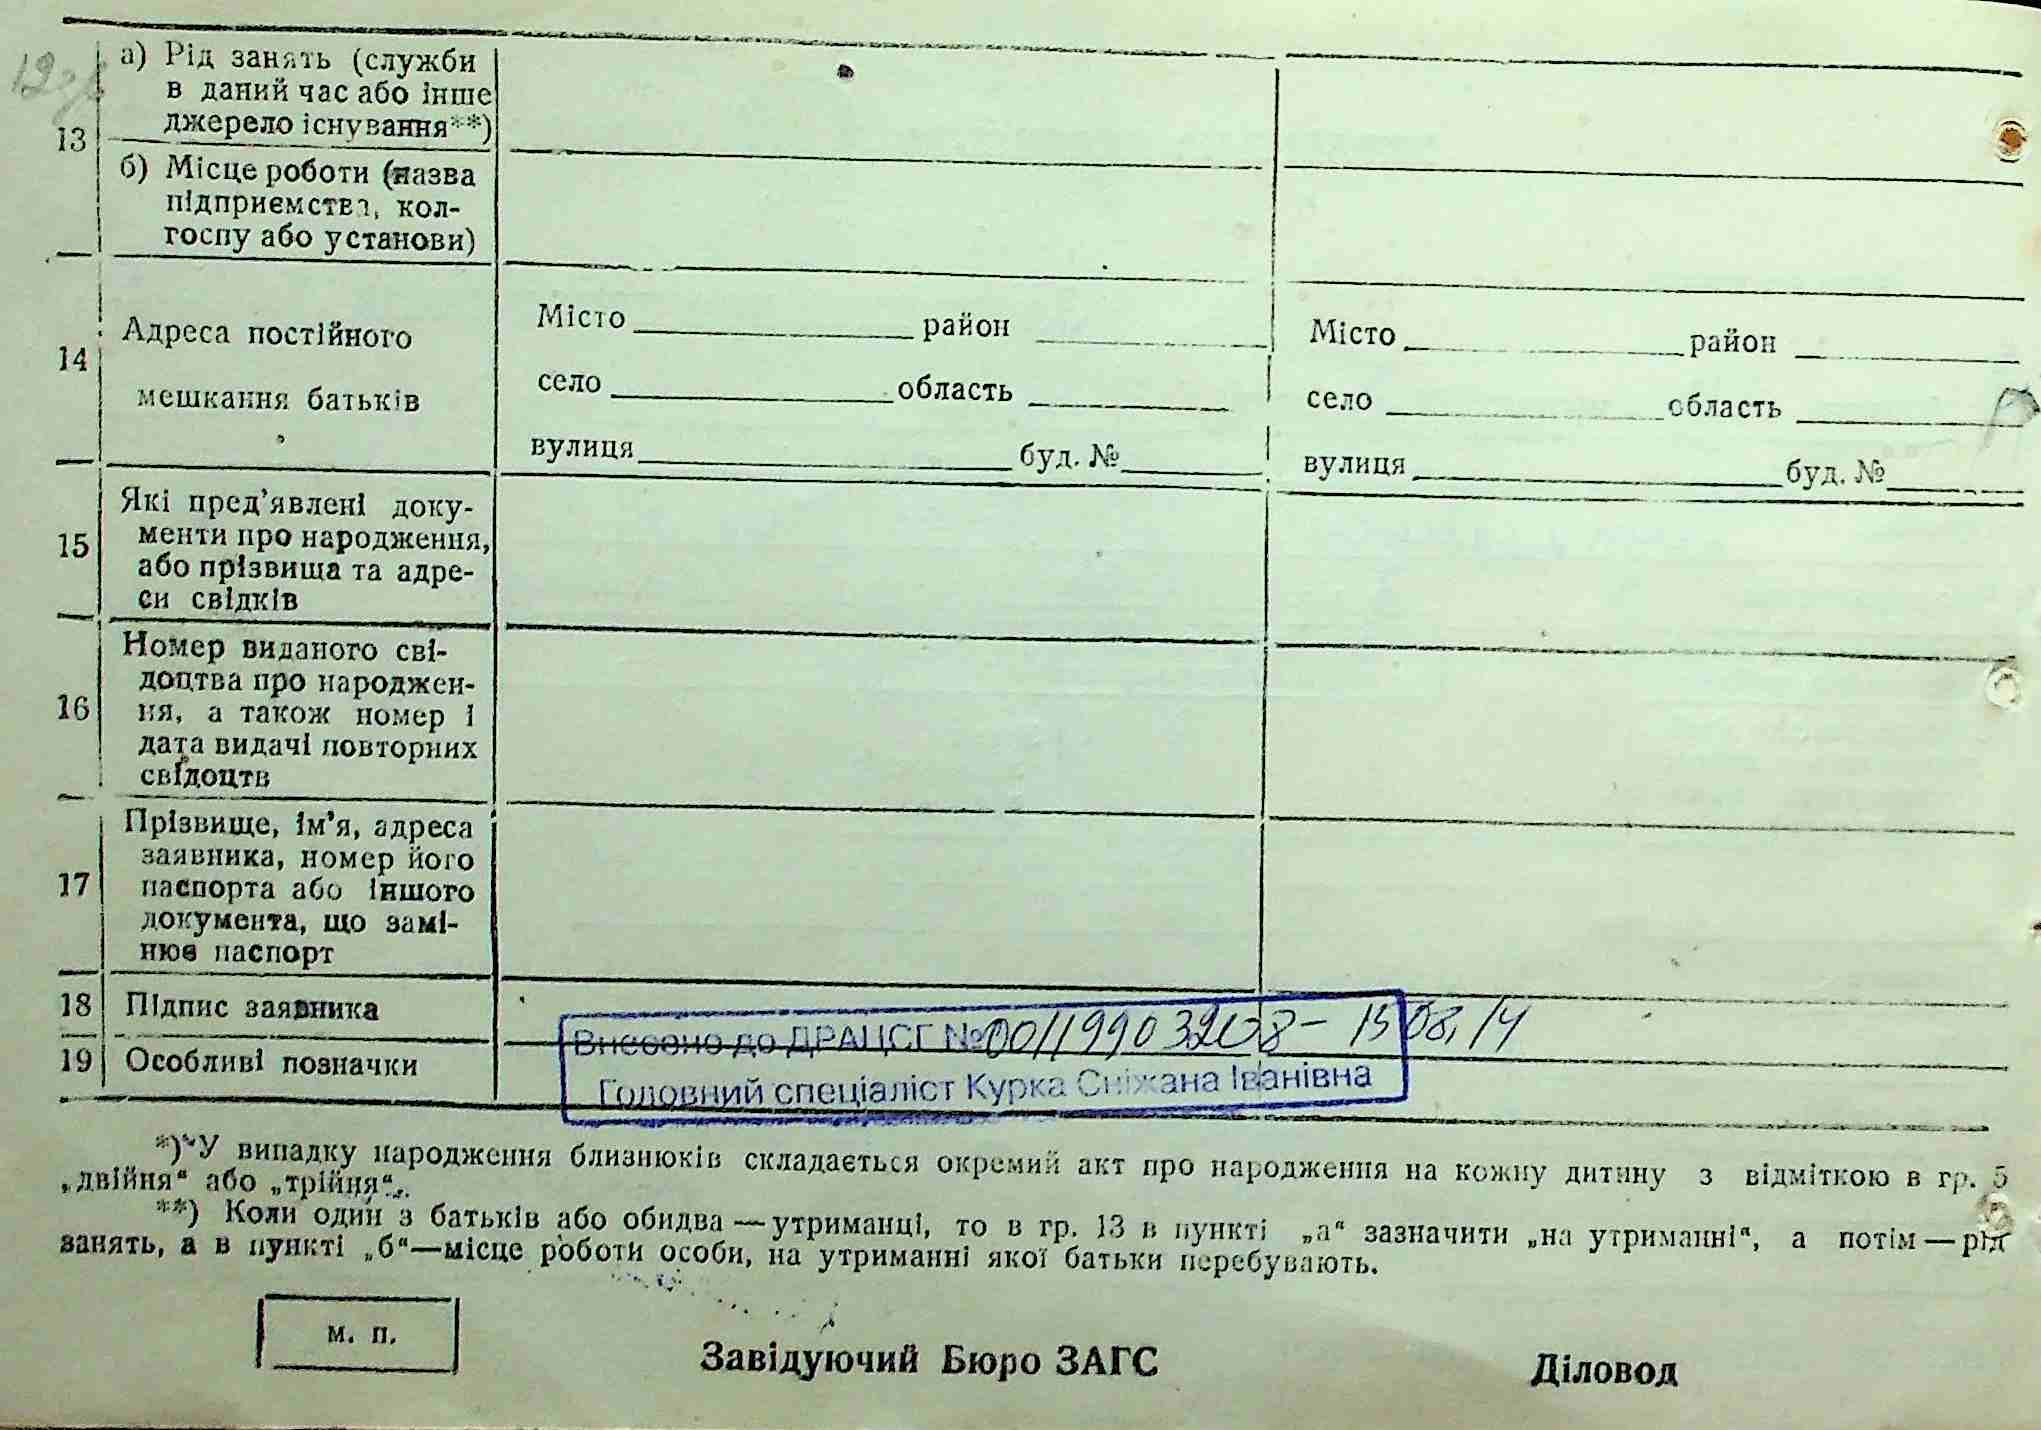 13
а) Рід занять (служби
в даний час або інше
джерело існування**)
б) Місце роботи (назва
підприємства, кол-
госпу або установи)
14
Адреса постійного
мешкання батьків
Місто район
село область
вулиця буд. №
Місто район
село область
вулиця буд. №
15
Які пред'явлені доку-
менти про народження,
або прізвища та адре-
си свідків
16
Номер виданого сві-
доцтва про народжен-
ня, а також номер і
дата видачі повторних
свідоцтв
17
Прізвище, ім'я, адреса
заявника, номер його
паспорта або іншого
документа, що замі-
нює паспорт
18 Підпис заявника
19 Особливі позначки
Внесено до ДРАЦСГ №00119903208 – 15 08.14
Головний спеціаліст Курка Сніжана Іванівна
*) У випадку народження близнюків складається окремий акт про народження на кожну дитину з відміткою в гр. 5
„двійня“ або „трійня“.
**) Коли один з батьків або обидва—утриманці, то в гр. 13 в пункті „а“ зазначити „на утриманні“, а потім—рід
занять, а в пункті „б“—місце роботи особи, на утриманні якої батьки перебувають.
м. п.
Завідуючий Бюро ЗАГС
Діловод